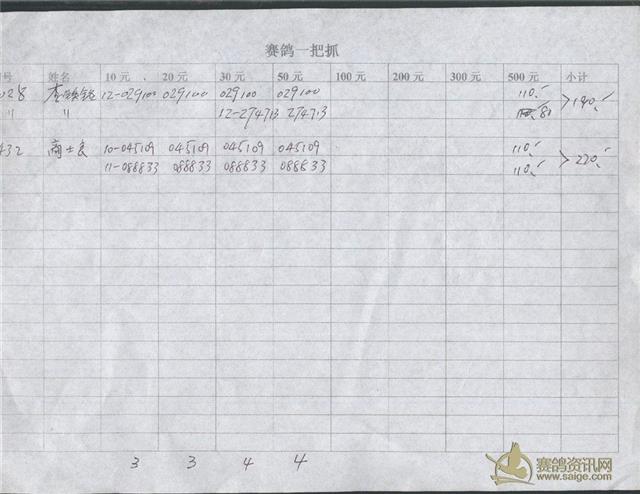 赛鸽一把抓
号 姓名 10元 20元 30元 50元 100元 200元 300元 500元 小计
028 12-029100 029100 029100 029100 110 190
" " 12-274713 274713 80
432 商士良 10-045109 045109 045109 045109 110 220
11-088833 088833 088833 088833 110
3 3 4 4
赛鸽资讯网
www.saige.com